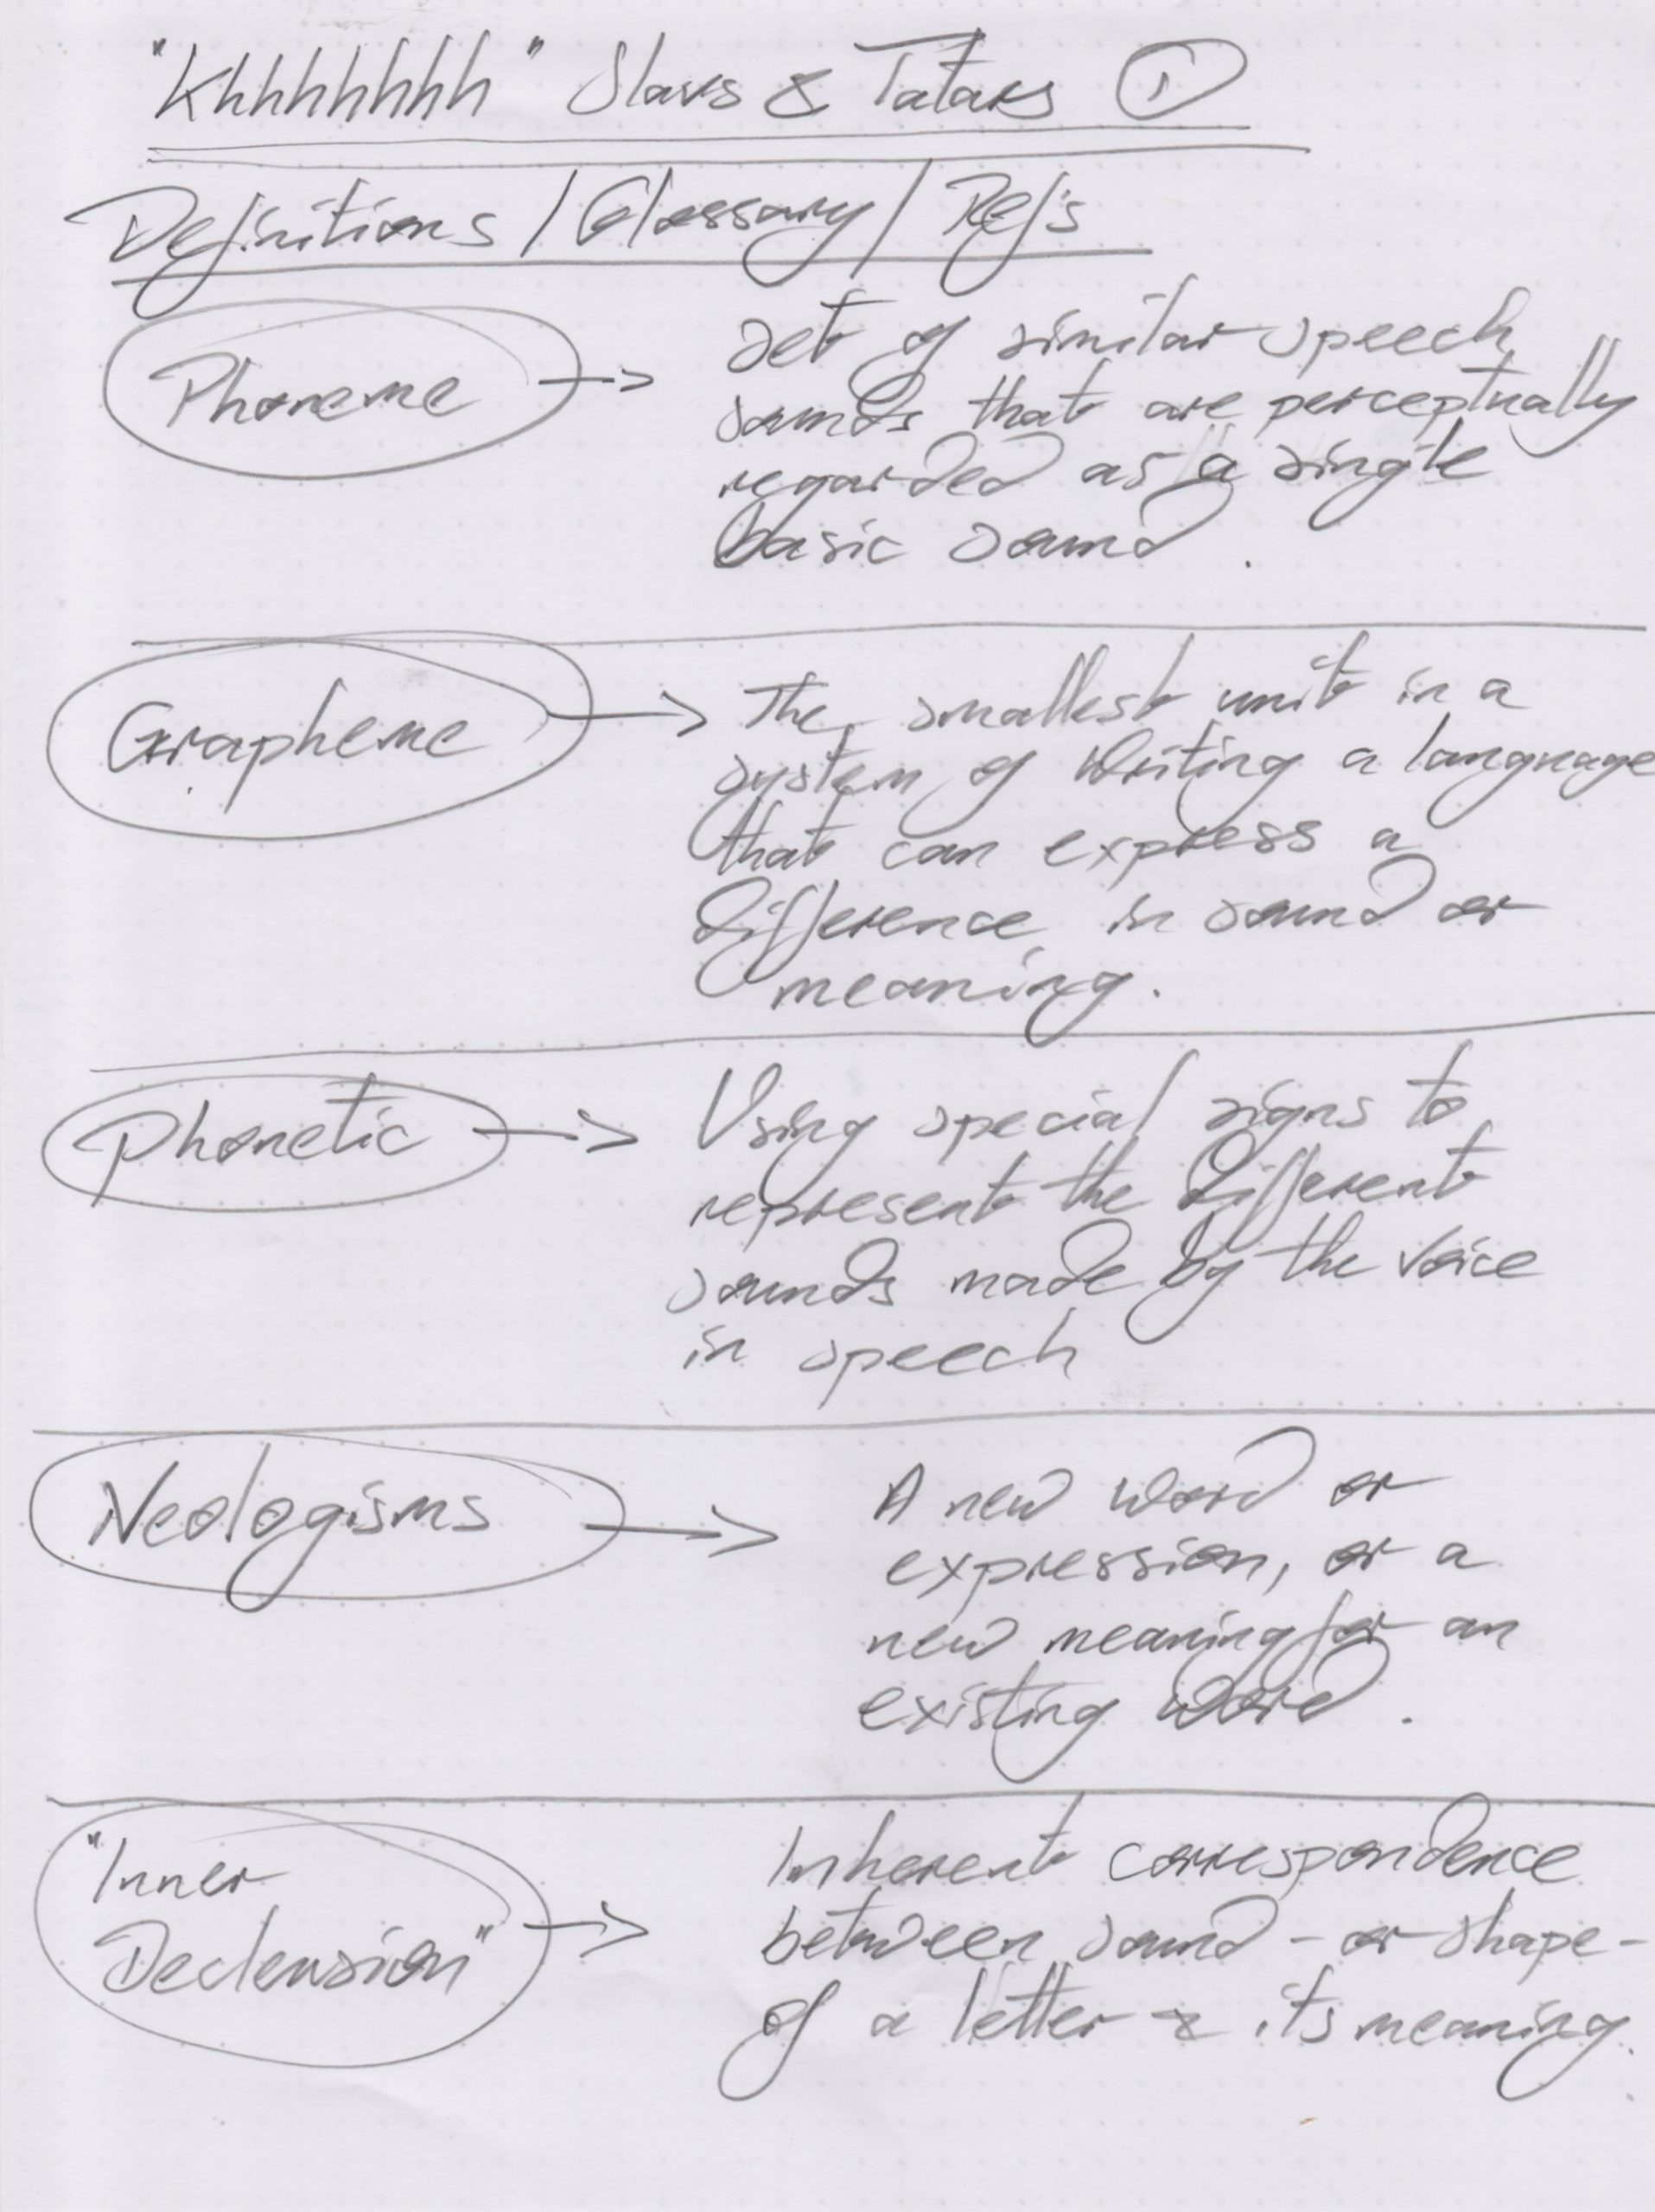 "Khhhhhhh" Slavs & Tatars 1
Definitions / Glossary / Ref's
Phoneme → Set of similar speech
sounds that are perceptually
regarded as a single
basic sound.
Grapheme → The smallest unit in a
system of writing a language
that can express a
difference in sound or
meaning.
Phonetic → Using special signs to
represent the different
sounds made by the voice
in speech
Neologisms → A new word or
expression, or a
new meaning for an
existing word.
"Inner
Declension" → Inherent correspondence
between sound - or shape -
of a letter & its meaning.